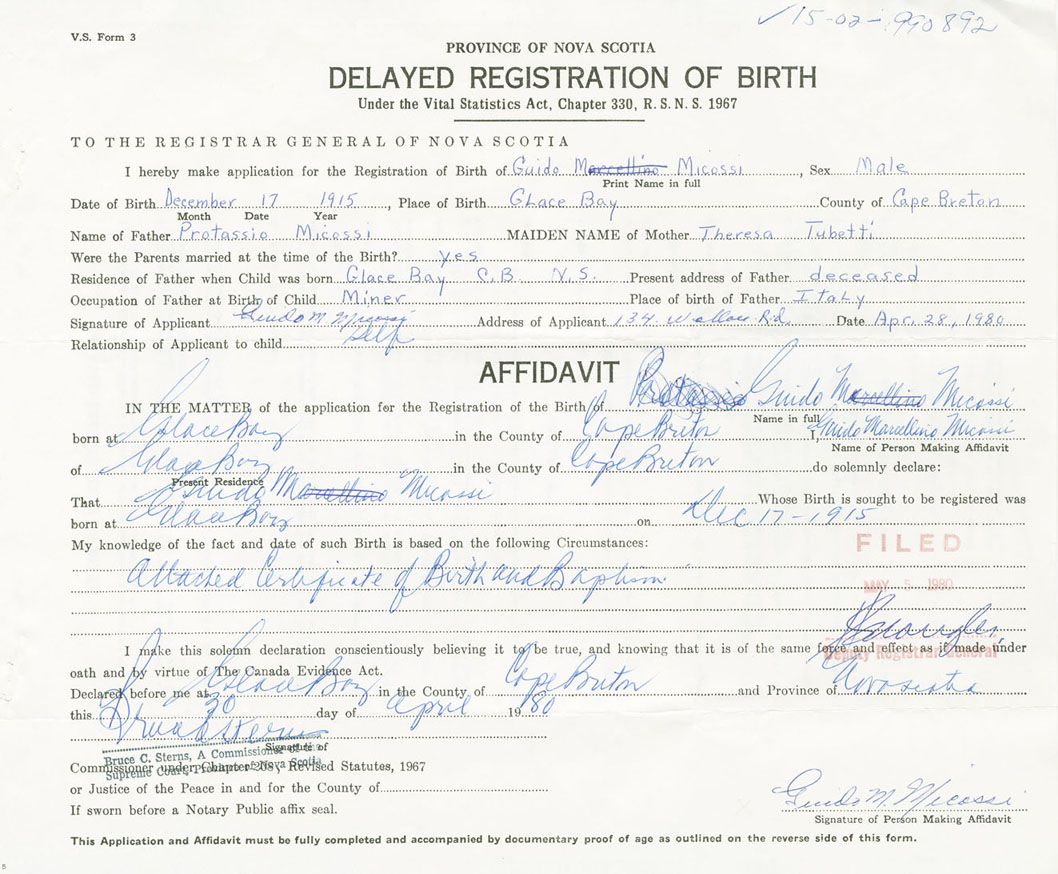 ✓15-02-990892
V.S. Form 3
PROVINCE OF NOVA SCOTIA
DELAYED REGISTRATION OF BIRTH
Under the Vital Statistics Act, Chapter 330, R.S.N.S. 1967
TO THE REGISTRAR GENERAL OF NOVA SCOTIA
I hereby make application for the Registration of Birth of Guido Marcellino Micossi, Sex Male
Print Name in full
Date of Birth December 17 1915, Place of Birth Glace Bay County of Cape Breton
Month Date Year
Name of Father Protassio Micossi MAIDEN NAME of Mother Theresa Tubetti
Were the Parents married at the time of the Birth? yes
Residence of Father when Child was born Glace Bay C.B. N.S. Present address of Father deceased
Occupation of Father at Birth of Child Miner Place of birth of Father Italy
Signature of Applicant Guido M Micossi Address of Applicant 134 Wallace Rd. Date Apr. 28, 1980
Relationship of Applicant to child Self
AFFIDAVIT
IN THE MATTER of the application for the Registration of the Birth of Protassio Guido Marcellino Micossi
Name in full
born at Glace Bay in the County of Cape Breton I, Guido Marcellino Micossi
Name of Person Making Affidavit
of Glace Bay in the County of Cape Breton do solemnly declare:
Present Residence
That Guido Marcellino Micossi Whose Birth is sought to be registered was
born at Glace Bay on Dec 17-1915
My knowledge of the fact and date of such Birth is based on the following Circumstances:
FILED
Attached Certificate of Birth and Baptism
MAY 5 1980
I make this solemn declaration conscientiously believing it to be true, and knowing that it is of the same force and effect as if made under
Deputy Registrar General
oath and by virtue of The Canada Evidence Act.
Declared before me at Glace Bay in the County of Cape Breton and Province of Nova Scotia
this 30 day of April 1980
Bruce C Sterns
Signature of
Bruce C. Sterns, A Commissioner of the
Supreme Court, Province of Nova Scotia
Commissioner under Chapter 208, Revised Statutes, 1967
or Justice of the Peace in and for the County of
If sworn before a Notary Public affix seal.
Guido M. Micossi
Signature of Person Making Affidavit
This Application and Affidavit must be fully completed and accompanied by documentary proof of age as outlined on the reverse side of this form.